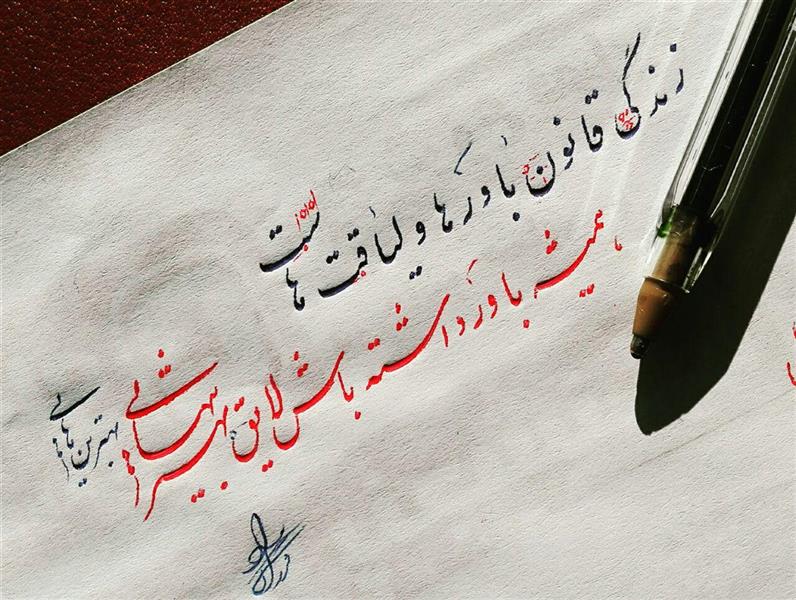 زندگی قانون باورها و لیاقت هاست
همیشه باور داشته باش لایق بهترینهایی
بهترین هایی